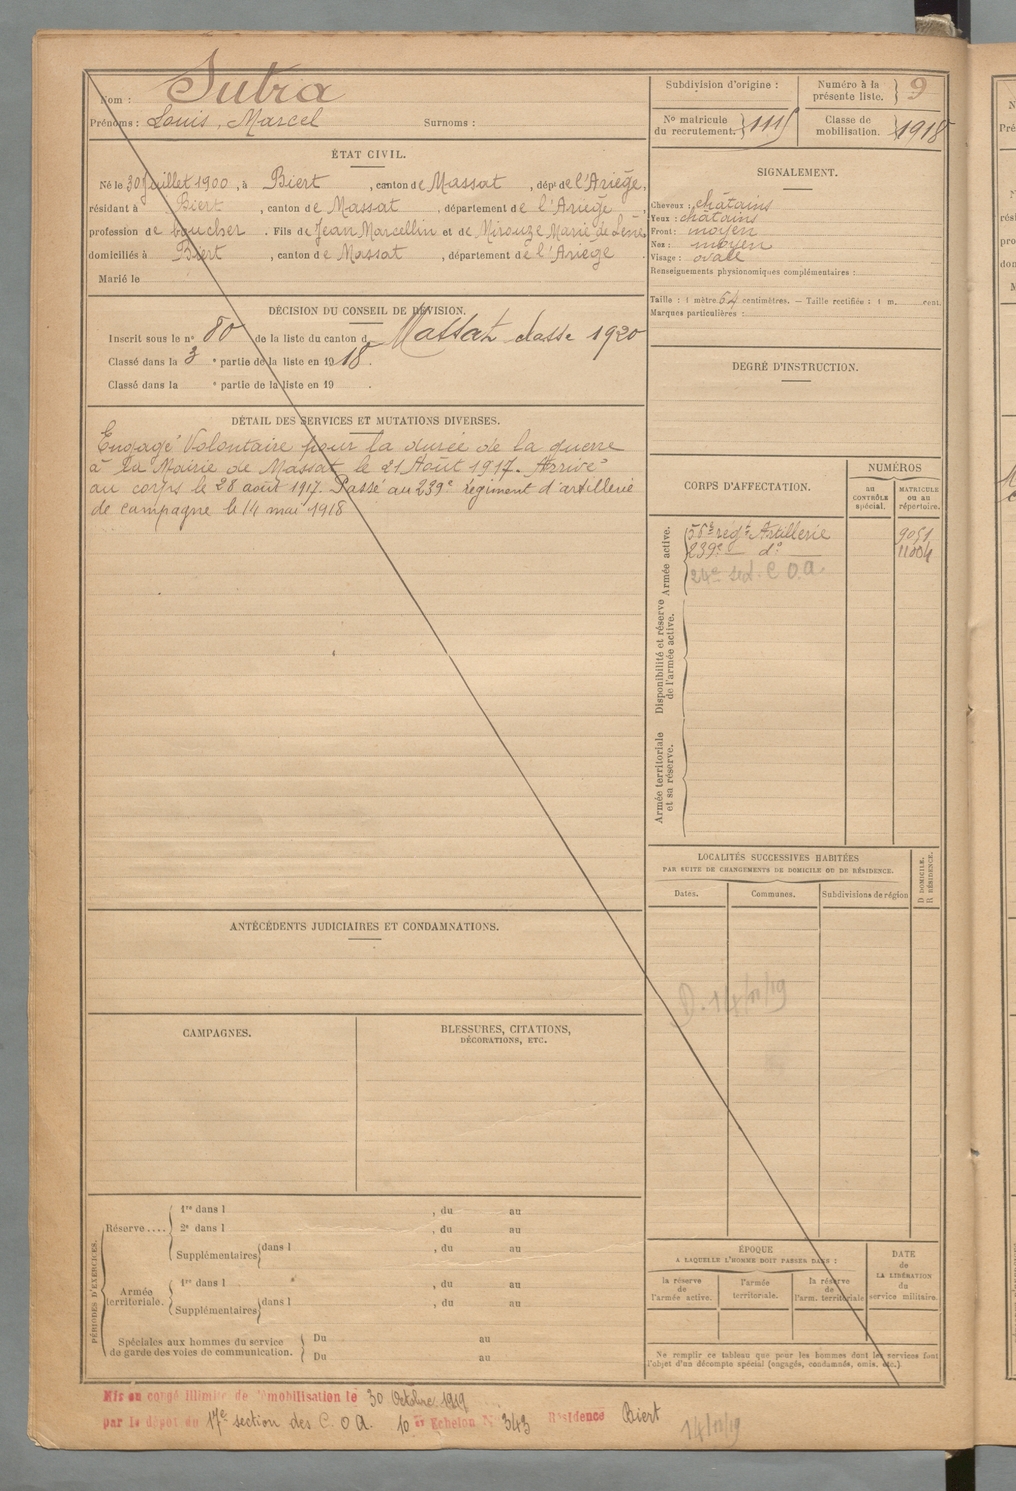 Nom : Sutra
Prénoms : Louis, Marcel Surnoms :
ÉTAT CIVIL.
Né le 30 Juillet 1900, à Biert, canton de Massat, dépt de l'Ariège,
résidant à Biert, canton de Massat, département de l'Ariège
profession de boucher. Fils de Jean Marcellin et de Mirouze Marie
domiciliés à Biert, canton de Massat, département de l'Ariège.
Marié le
DÉCISION DU CONSEIL DE RÉVISION.
Inscrit sous le n° 80 de la liste du canton d Massat classe 1920
Classé dans la 3 e partie de la liste en 1918.
Classé dans la e partie de la liste en 19 .
DÉTAIL DES SERVICES ET MUTATIONS DIVERSES.
Engagé Volontaire pour la durée de la guerre
à la Mairie de Massat le 21 Août 1917. Arrivé
au corps le 28 août 1917. Passé au 239e Régiment d'artillerie
de campagne le 14 mai 1918
ANTÉCÉDENTS JUDICIAIRES ET CONDAMNATIONS.
CAMPAGNES.
BLESSURES, CITATIONS,
DÉCORATIONS, ETC.
PÉRIODES D'EXERCICES.
Réserve....
1re dans l , du au
2e dans l , du au
Supplémentaires dans l , du au
Armée
territoriale.
1re dans l , du au
Supplémentaires dans l , du au
Spéciales aux hommes du service
de garde des voies de communication.
Du au
Du au
Subdivision d'origine :
Numéro à la
présente liste. 9
N° matricule
du recrutement. 1115
Classe de
mobilisation. 1918
SIGNALEMENT.
Cheveux : châtains
Yeux : châtains
Front : moyen
Nez : moyen
Visage : ovale
Renseignements physionomiques complémentaires :
Taille : 1 mètre 64 centimètres. — Taille rectifiée : 1 m. cent.
Marques particulières :
DEGRÉ D'INSTRUCTION.
CORPS D'AFFECTATION.
NUMÉROS
au
CONTRÔLE
spécial.
MATRICULE
ou au
répertoire.
Armée active.
58e regt Artillerie 9051
239e — d° — 11004
24e sect. C O A
Disponibilité et réserve
de l'armée active.
Armée territoriale
et sa réserve.
LOCALITÉS SUCCESSIVES HABITÉES
PAR SUITE DE CHANGEMENTS DE DOMICILE OU DE RÉSIDENCE.
Dates.
Communes.
Subdivisions de région
D. DOMICILE.
R. RÉSIDENCE.
D. 14/11/19
ÉPOQUE
A LAQUELLE L'HOMME DOIT PASSER DANS :
la réserve
de
l'armée active.
l'armée
territoriale.
la réserve
de
l'arm. territoriale
DATE
de
LA LIBÉRATION
du
service militaire.
Ne remplir ce tableau que pour les hommes dont les services font
l'objet d'un décompte spécial (engagés, condamnés, omis, etc.)
Mis en congé illimité de démobilisation le 30 Octobre 1919
par le dépôt du 17e section des C. O A. 10 Echelon N° 343 Résidence Biert
14/11/19